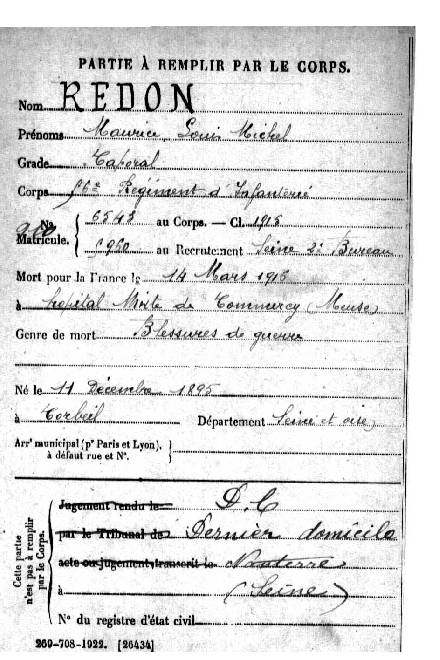 PARTIE À REMPLIR PAR LE CORPS.
Nom REDON
Prénoms Maurice Louis Michel
Grade Caporal
Corps 56e Régiment d'Infanterie
No 6543 au Corps. — Cl. 1915
Matricule. 5960 au Recrutement Seine 2e Bureau
Mort pour la France le 14 Mars 1915
à hopital Mixte de Commercy (Meuse)
Genre de mort Blessures de guerre
Né le 11 Décembre 1895
à Corbeil Département Seine et oise
Arrt municipal (pr Paris et Lyon),
à défaut rue et No.
Cette partie
n'est pas à remplir
par le Corps.
Jugement rendu le D.C
par le Tribunal de Dernier domicile
acte ou jugement transcrit le Nanterre
à (Seine)
No du registre d'état civil
269-708-1922. [26434]